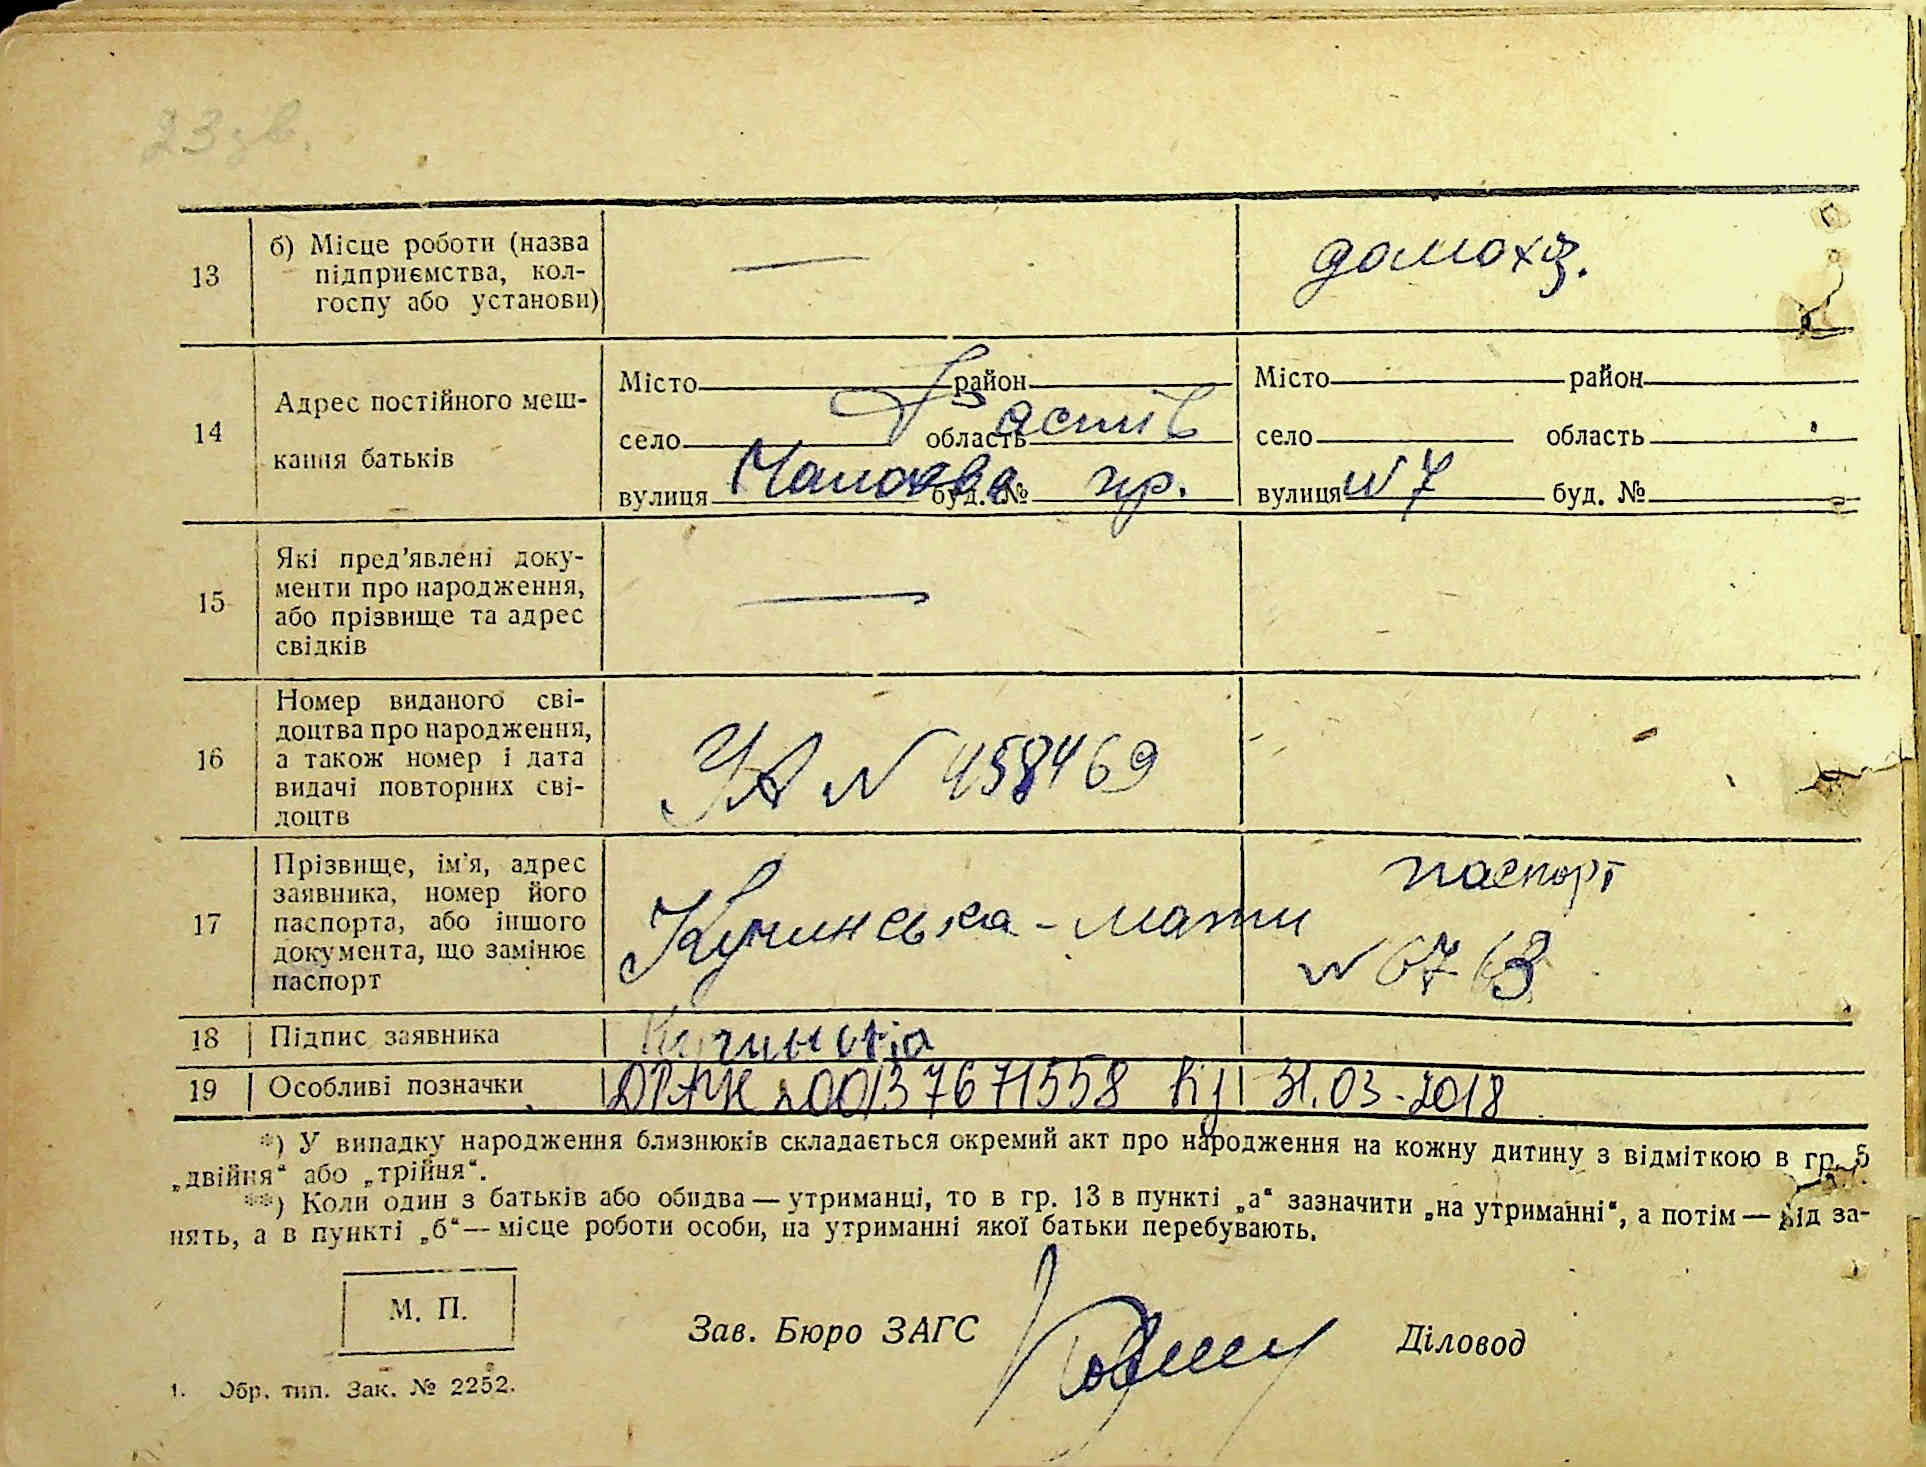 23 зв.
13
б) Місце роботи (назва
підприємства, кол-
госпу або установи)
—
домохз.
14
Адрес постійного меш-
кання батьків
Місто район
село область
Фастів
вулиця буд. №
пр.
Місто район
село область
вулиця N 7 буд. №
15
Які пред'явлені доку-
менти про народження,
або прізвище та адрес
свідків
—
16
Номер виданого сві-
доцтва про народження,
а також номер і дата
видачі повторних сві-
доцтв
УА N 458469
17
Прізвище, ім'я, адрес
заявника, номер його
паспорта, або іншого
документа, що замінює
паспорт
Кучинська - мати
паспорт
N 6763
18 Підпис заявника
Кучинська
19 Особливі позначки
ДРАЧК 200137671558 31.03.2018
*) У випадку народження близнюків складається окремий акт про народження на кожну дитину з відміткою в гр. 5
„двійня“ або „трійня“.
**) Коли один з батьків або обидва — утриманці, то в гр. 13 в пункті „а“ зазначити „на утриманні“, а потім — від за-
нять, а в пункті „б“ — місце роботи особи, на утриманні якої батьки перебувають.
М. П.
Зав. Бюро ЗАГС
Діловод
1. Обр. тип. Зак. № 2252.